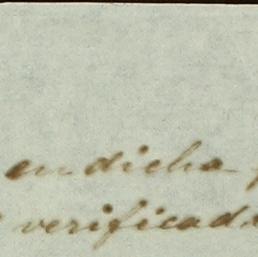 en dicha
verificad